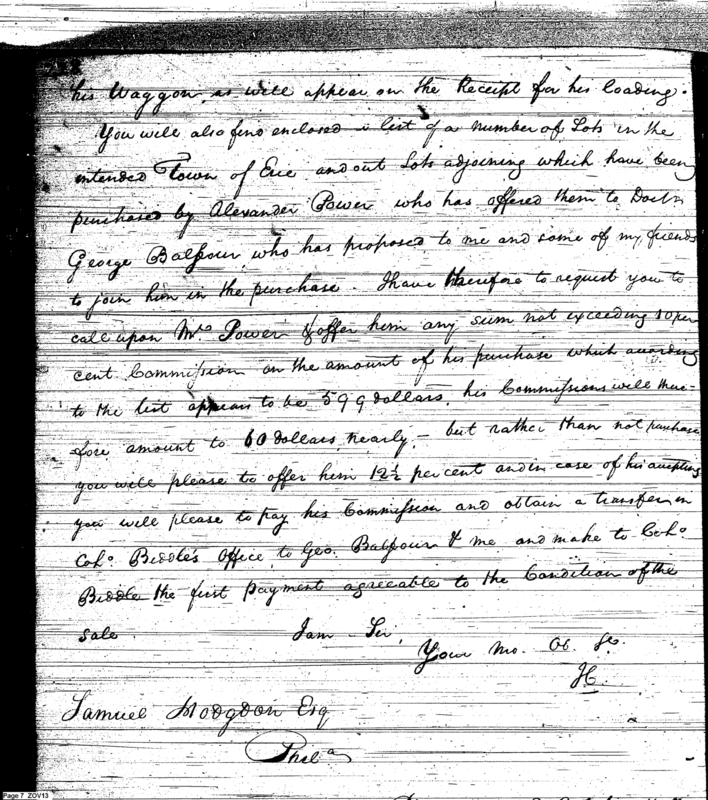 his Waggon, as will appear on the Receipt for his loading.
You will also find enclosed a list of a number of Lots in the
intended Town of Erie and out Lots adjoining which have been
purchased by Alexander Power who has offered them to Doctr
George Balfour, who has proposed to me and some of my friends
to join him in the purchase. I have therefore to request you to
call upon Mr. Power & offer him any sum not exceeding 10 per
cent Commission on the amount of his purchase which according
to the list appears to be 599 dollars, his Commissions will there-
fore amount to 60 dollars, nearly,- but rather than not purchase
you will please to offer him 12½ per cent and in case of his accepting
you will please to pay his Commission and obtain a transfer in
Colo. Biddle's Office, to Geo. Balfour & me and make to Colo.
Biddle the first payment agreeable to the Condition of the
sale. I am Sir,
Your Mo. Ob. Se.
Samuel Hodgdon Esq
Phila
Page 7 ZOV13